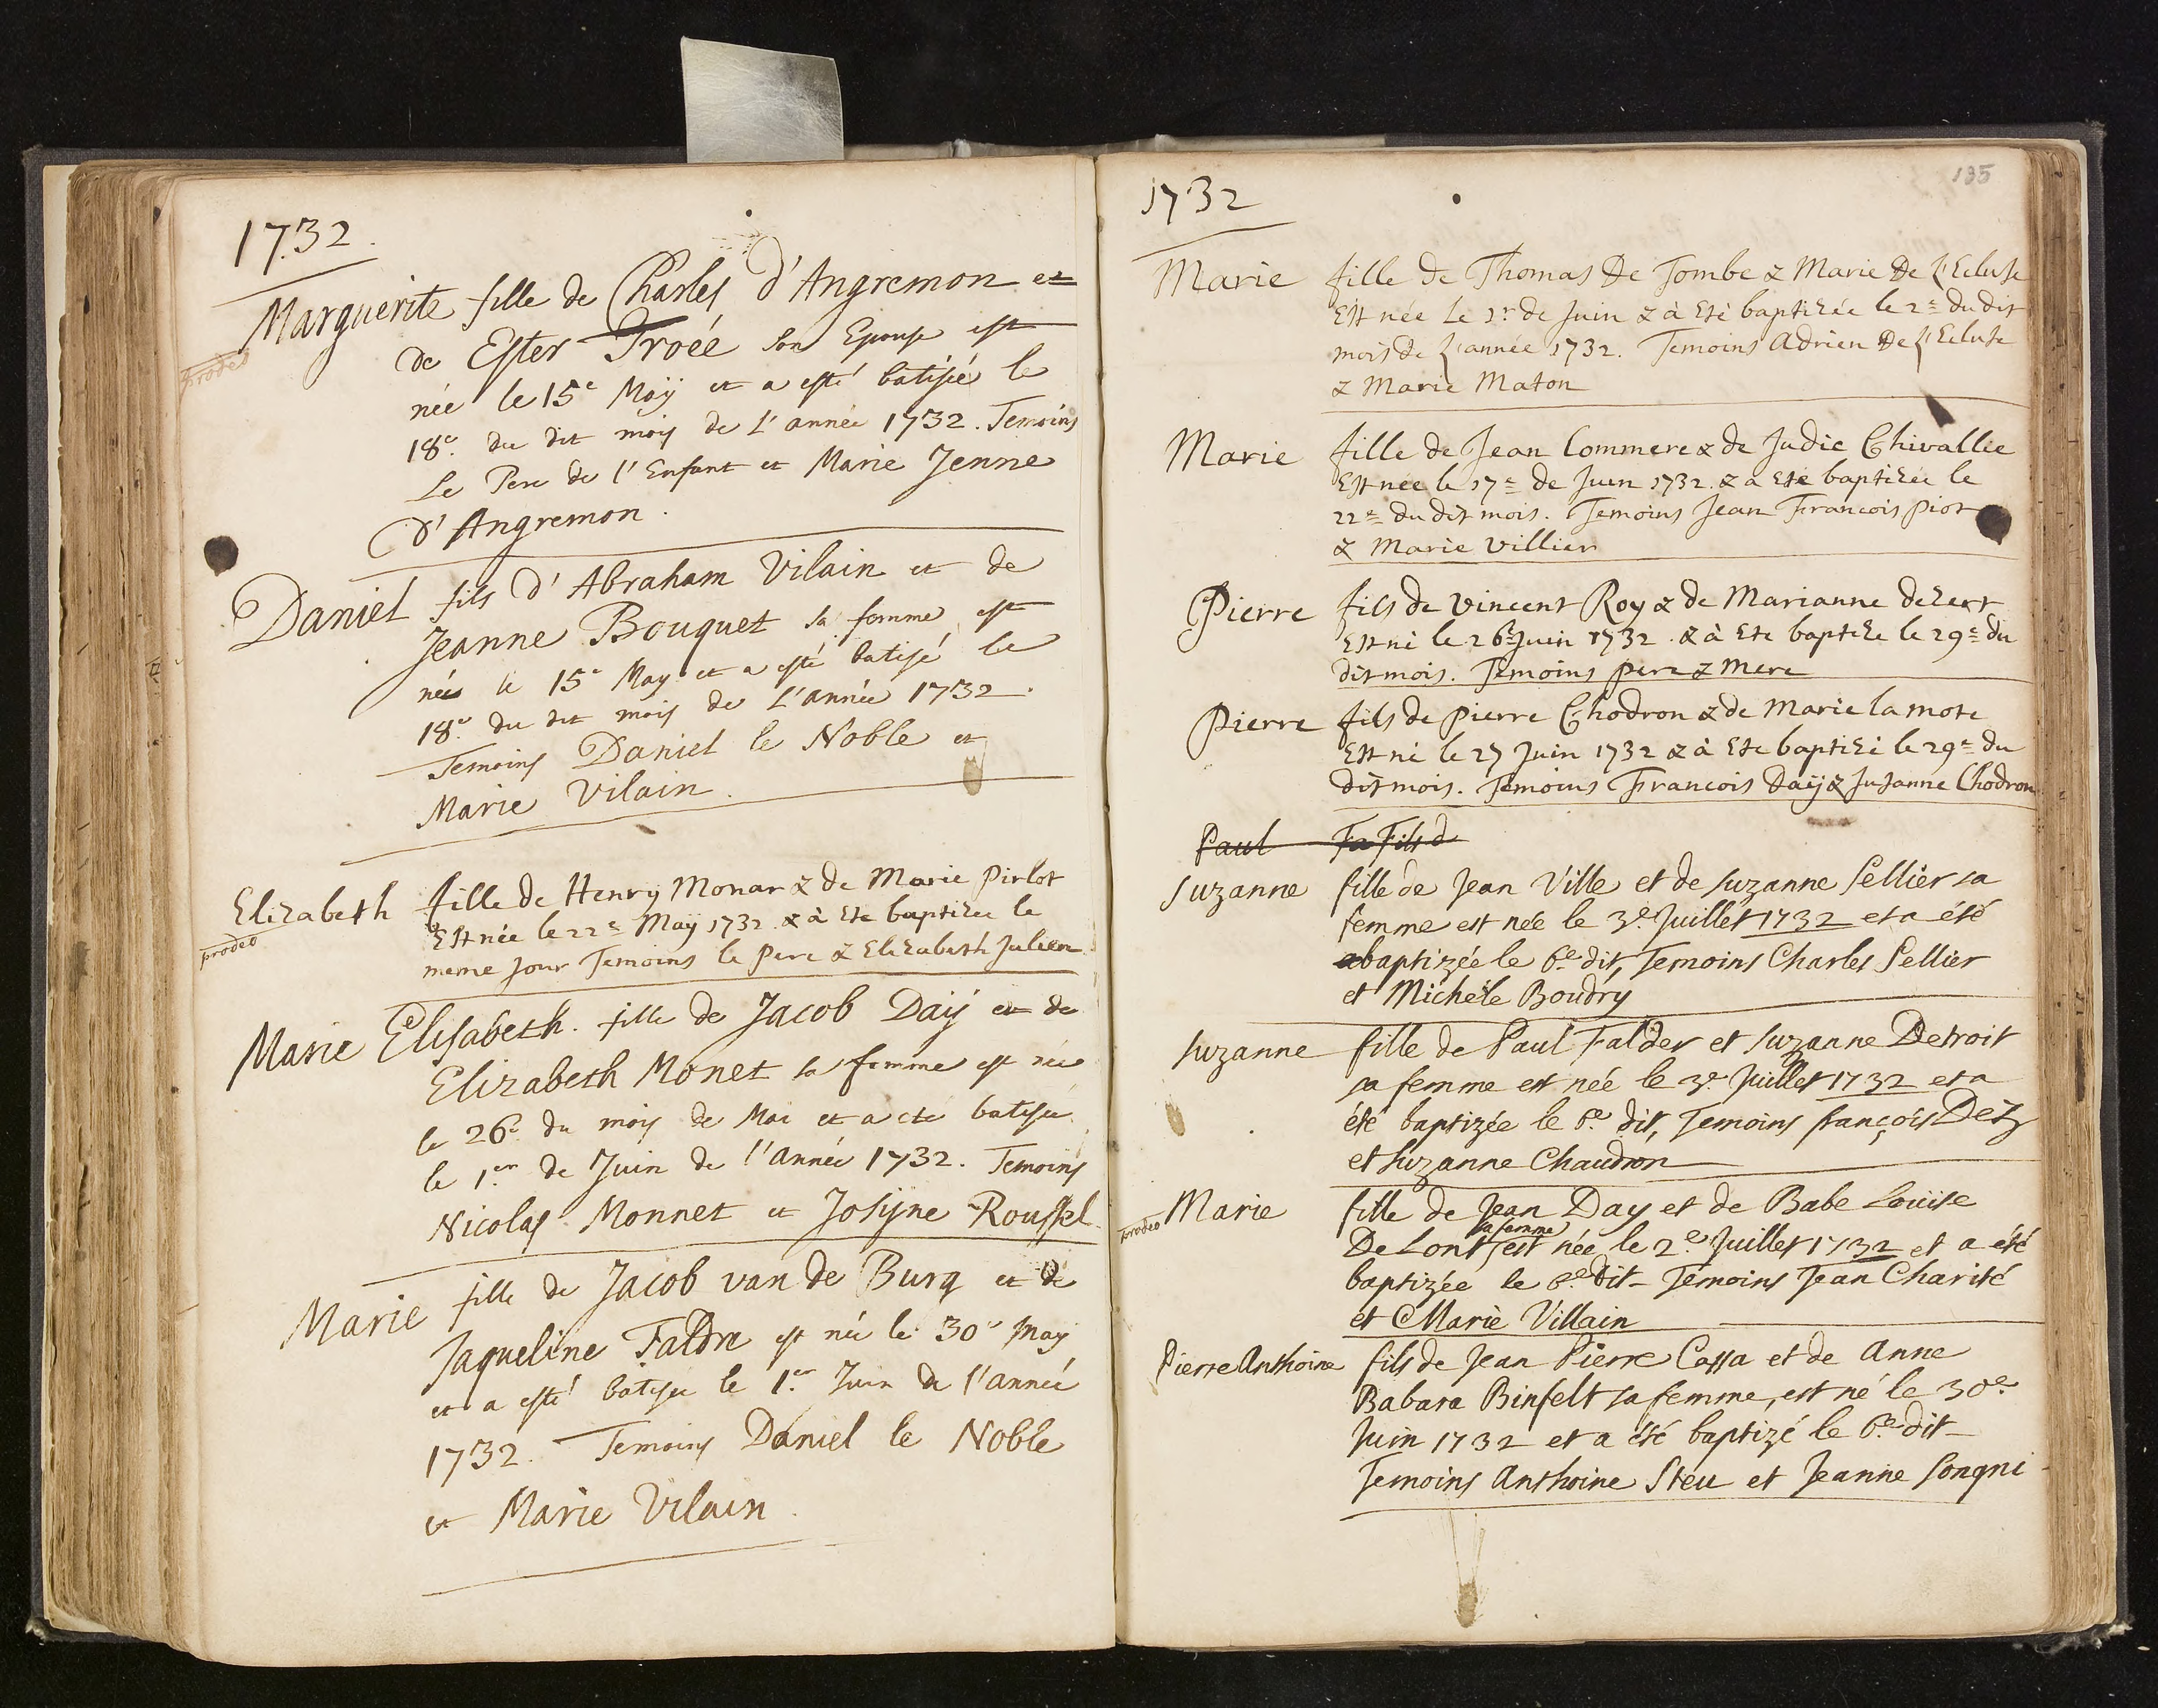 1732.
Marguerite fille de Charles d'Angremon et
de Ester Troéé son Epouse est
née le 15e Maÿ et a esté batisée le
18e. du dit mois de L'année 1732. Temoins
Le Pere de l'Enfant et Marie Jenne
d'Angremon.
prodeo
Daniel fils d'Abraham Vilain et de
Jeanne Bouquet sa femme est
née le 15e May et a esté batisé le
18e. du dit mois de L'année 1732.
Temoins Daniel le Noble et
Marie Vilain.
Elizabeth fille de Henry Monar & de Marie Pirlot
Est née le 22e Maÿ 1732. & à Ete baptizee le
meme Jour Temoins le Pere & Elizabeth Julien
prodeo
Marie Elisabeth. fille de Jacob Daÿ et de
Elizabeth Monet sa femme est née
le 26e du mois de Mai et a eté batisée
le 1.er de Juin de l'année 1732. Temoins
Nicolas Monnet et Josÿne Roussel.
Marie fille de Jacob van de Burg et de
Jaqueline Faldre est née le 30e May
et a esté batisee le 1.er Juin de l'année
1732. Temoins Daniel le Noble
et Marie Vilain.
135
1732
Marie fille de Thomas De Tombe & Marie De l'Ecluse
Est née Le 1r de Juin & à Eté baptizée le 2e du dit
mois de l'année 1732. Temoins Adrien De l'Ecluse
& Marie Maton
Marie fille de Jean Commere & de Judic Chivallee
Est née le 17e de Juin 1732. & a Eté baptizée le
22e du dit mois. Temoins Jean Francois Piot
& Marie Villien
Pierre fils de Vincent Roy & de Marianne dezert
Est né le 26e Juin 1732. & à Ete baptize le 29e du
dit mois. Temoins Pere & Mere
Pierre fils de Pierre Chodron & de Marie la mote
Est né le 27 Juin 1732 & à Ete baptizé le 29e du
dit mois. Temoins Francois Daÿ & Susanne Chodron
Paul Fa Fils d
Suzanne fille de Jean Ville et de Suzanne Sellier sa
femme est née le 3e. Juillet 1732 et a été
abaptizée le 6e. dit, Temoins Charles Sellier
et Michéle Boudry
Suzanne fille de Paul Falder et Suzanne Detroit
sa femme est née le 3e. Juillet 1732 et a
été baptizée le 6e. dit, Temoins françois Deÿ
et Suzanne Chaudron
Marie fille de Jean Day et de Babe Louise
prodeo
sa femme
De Lont est née le 2e. Juillet 1732 et a été
baptizée le 6e. dit_ Temoins Jean Charité
et Marie Villain
Pierre Anthoine fils de Jean Pierre Cassa et de Anne
Babara Binfelt sa femme, est né le 30e.
Juin 1732 et a été baptizé le 6e. dit_
Temoins Anthoine Steu et Jeanne Songni